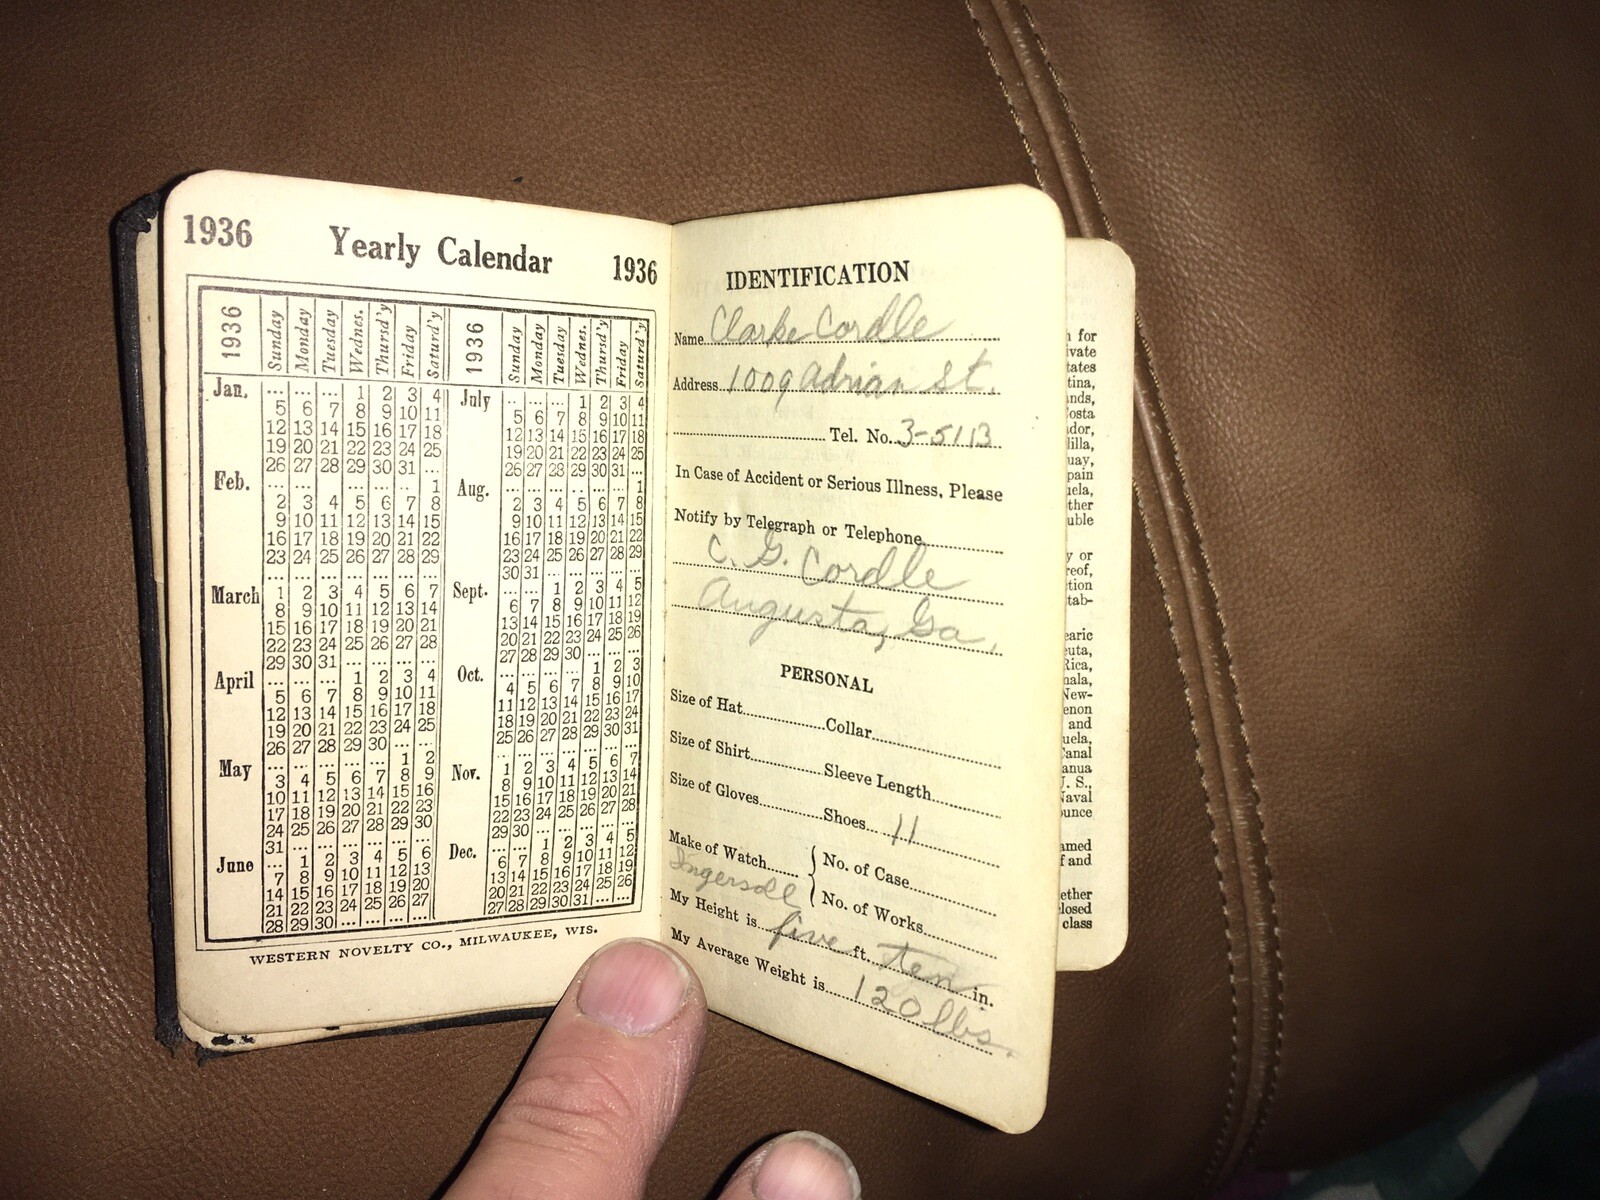 1936 Yearly Calendar 1936
1936 Sunday Monday Tuesday Wednes. Thursd'y Friday Saturd'y
Jan. ... ... ... 1 2 3 4
5 6 7 8 9 10 11
12 13 14 15 16 17 18
19 20 21 22 23 24 25
26 27 28 29 30 31 ...
Feb. ... ... ... ... ... ... 1
2 3 4 5 6 7 8
9 10 11 12 13 14 15
16 17 18 19 20 21 22
23 24 25 26 27 28 29
... ... ... ... ... ... ...
March 1 2 3 4 5 6 7
8 9 10 11 12 13 14
15 16 17 18 19 20 21
22 23 24 25 26 27 28
29 30 31 ... ... ... ...
April ... ... ... 1 2 3 4
5 6 7 8 9 10 11
12 13 14 15 16 17 18
19 20 21 22 23 24 25
26 27 28 29 30 ... ...
May ... ... ... ... ... 1 2
3 4 5 6 7 8 9
10 11 12 13 14 15 16
17 18 19 20 21 22 23
24 25 26 27 28 29 30
31 ... ... ... ... ... ...
June ... 1 2 3 4 5 6
7 8 9 10 11 12 13
14 15 16 17 18 19 20
21 22 23 24 25 26 27
28 29 30 ... ... ... ...
1936 Sunday Monday Tuesday Wednes. Thursd'y Friday Saturd'y
July ... ... ... 1 2 3 4
5 6 7 8 9 10 11
12 13 14 15 16 17 18
19 20 21 22 23 24 25
26 27 28 29 30 31 ...
Aug. ... ... ... ... ... ... 1
2 3 4 5 6 7 8
9 10 11 12 13 14 15
16 17 18 19 20 21 22
23 24 25 26 27 28 29
30 31 ... ... ... ... ...
Sept. ... ... 1 2 3 4 5
6 7 8 9 10 11 12
13 14 15 16 17 18 19
20 21 22 23 24 25 26
27 28 29 30 ... ... ...
Oct. ... ... ... ... 1 2 3
4 5 6 7 8 9 10
11 12 13 14 15 16 17
18 19 20 21 22 23 24
25 26 27 28 29 30 31
... ... ... ... ... ... ...
Nov. 1 2 3 4 5 6 7
8 9 10 11 12 13 14
15 16 17 18 19 20 21
22 23 24 25 26 27 28
29 30 ... ... ... ... ...
Dec. ... ... 1 2 3 4 5
6 7 8 9 10 11 12
13 14 15 16 17 18 19
20 21 22 23 24 25 26
27 28 29 30 31 ... ...
WESTERN NOVELTY CO., MILWAUKEE, WIS.
IDENTIFICATION
Name Clarke Cordle
Address 1009 Adrian St.
Tel. No. 3-5113
In Case of Accident or Serious Illness, Please
Notify by Telegraph or Telephone
C. G. Cordle
Augusta, Ga.
PERSONAL
Size of Hat Collar
Size of Shirt Sleeve Length
Size of Gloves Shoes 11
Make of Watch { No. of Case
Ingersoll No. of Works
My Height is five ft. ten in.
My Average Weight is 120 lbs.